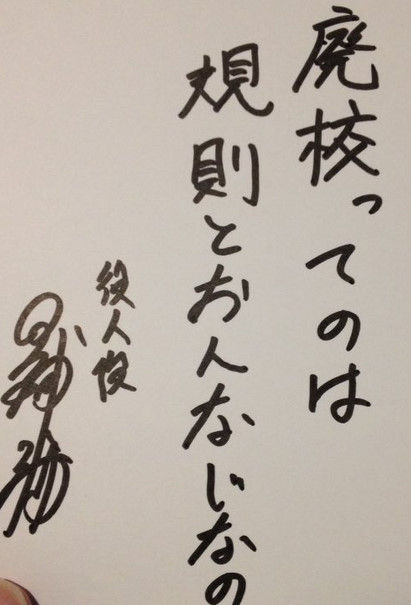 廃校ってのは
規則とおんなじなの
役人役